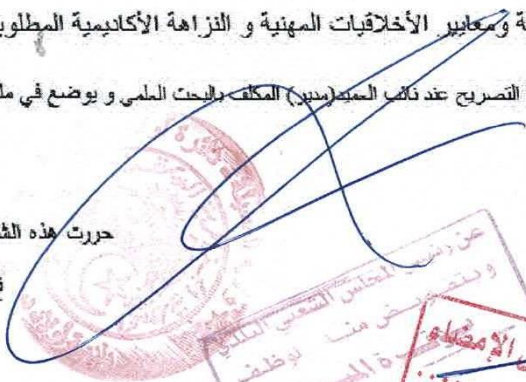 ة ومعايير الأخلاقيات المهنية و النزاهة الأكاديمية المطلوب
التصريح عند نائب العميد(مدير) المكلف بالبحث العلمي و يوضع في مل
حررت هذه الش
عن رئيس المجلس الشعبي البلدي
وبتفويض منه
الإمضاء